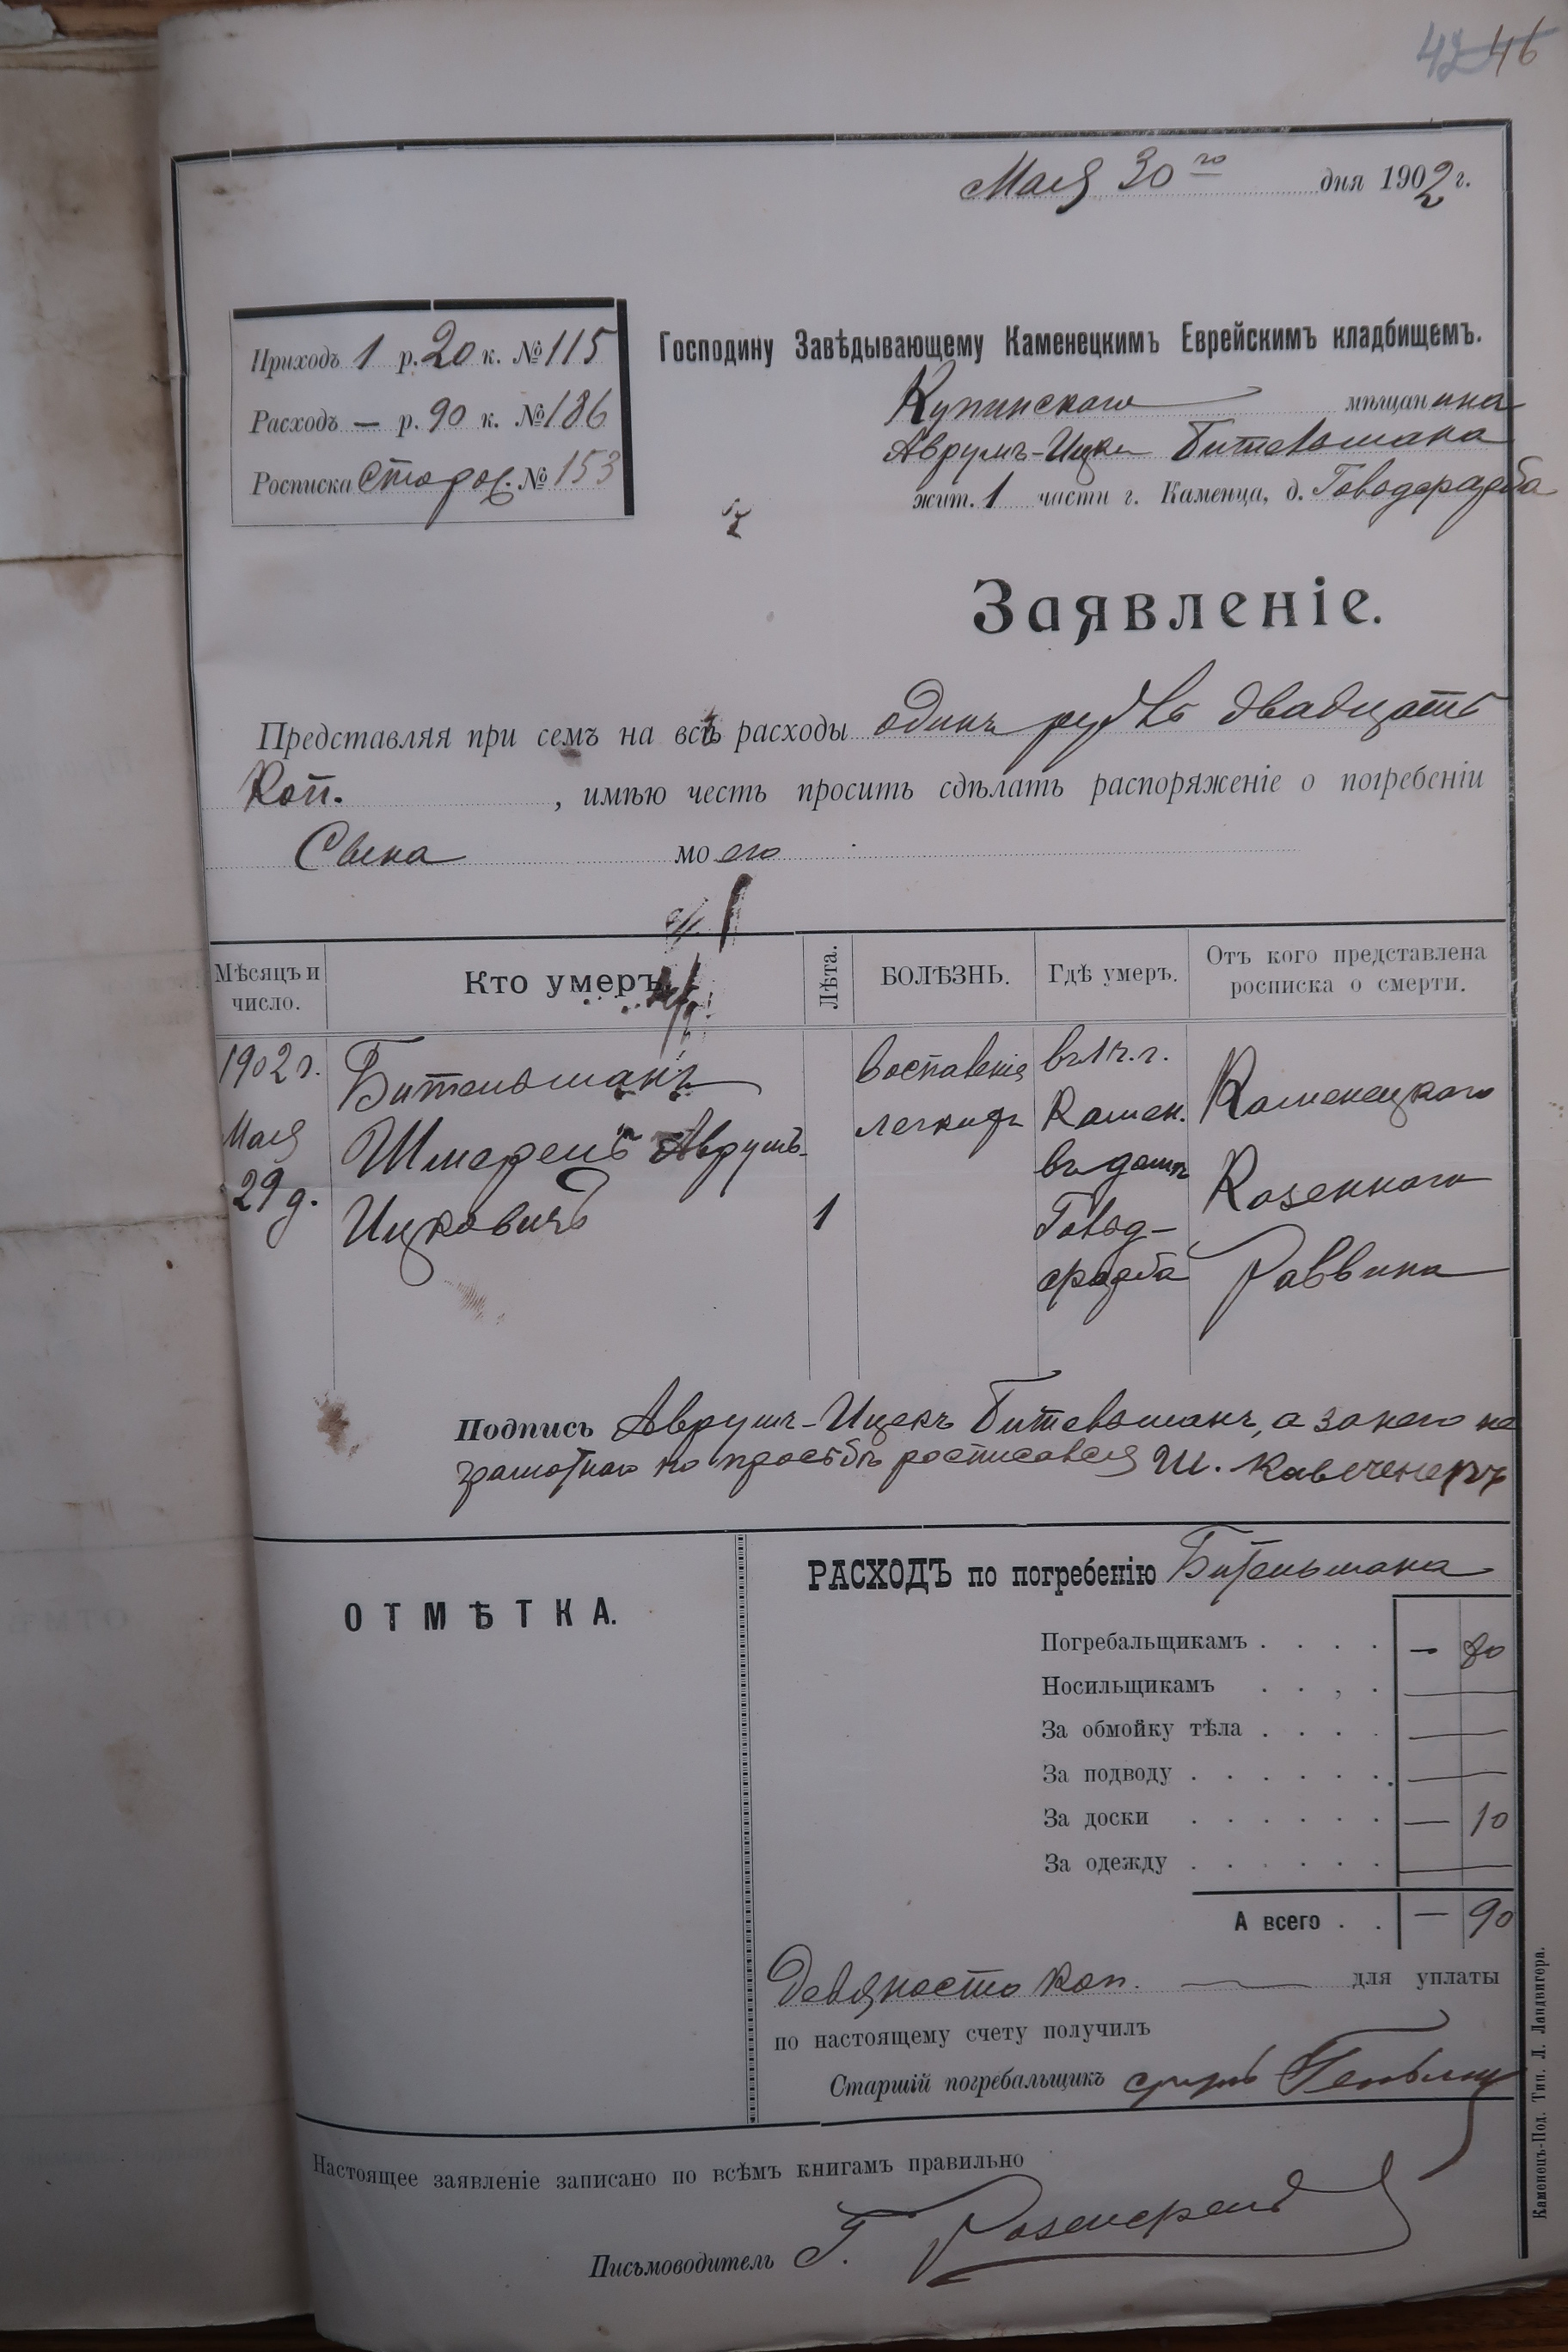 42 46
Мая 30 го дня 1902 г.
Приходъ 1 р. 20 к. № 115
Расходъ — р. 90 к. № 186
Росписка № 153
Господину Завѣдывающему Каменецкимъ Еврейскимъ кладбищемъ.
Купинскаго мѣщанина
Аврумъ-Ицка Бительмана
жит. 1 части г. Каменца, д.
Заявленіе.
Представляя при семъ на всѣ расходы одинъ рубль двадцать
Коп. , имѣю честь просить сдѣлать распоряженіе о погребеніи
Сына моего
Мѣсяцъ и число.
Кто умеръ.
Лѣта.
БОЛѢЗНЬ.
Гдѣ умеръ.
Отъ кого представлена росписка о смерти.
1902 г. Мая 29 д.
Бительманъ Аврумъ-Ицковичъ
1
Воспаленія легкихъ
въ 1 ч. г. Камен. въ домѣ
Каменецкаго Казеннаго Раввина
Подпись Аврумъ-Ицекъ Бительманъ, а за него не
грамотнаго по просьбѣ росписался Ш.
ОТМѢТКА.
РАСХОДЪ по погребенію Бительмана
Погребальщикамъ . . . . — 80
Носильщикамъ . . , . —
За обмойку тѣла . . . . —
За подводу . . . . . . —
За доски . . . . . . — 10
За одежду . . . . . . —
А всего . . — 90
Девяносто коп. — для уплаты
по настоящему счету получилъ
Старшій погребальщикъ
Настоящее заявленіе записано по всѣмъ книгамъ правильно
Письмоводитель Г.
Каменецъ-Под. Тип. Л. Ландвигера.